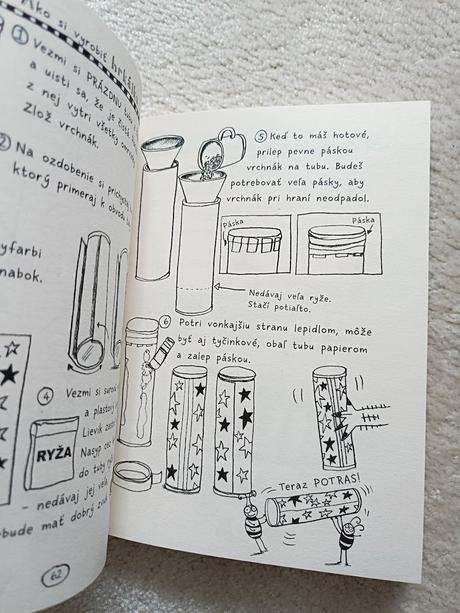 Ako si vyrobiť
1 Vezmi si PRÁZDNU
a uisti sa, že je čistá
z nej vytri všetky
Zlož vrchnák.
2 Na ozdobenie si
ktorý primeraj k obvodu
nabok.
4 Vezmi si
a plastový
Lievik
Nasyp
do tuby
nedávaj jej veľa
bude mať dobrý zvuk
RYŽA
62
5 Keď to máš hotové,
prilep pevne páskou
vrchnák na tubu. Budeš
potrebovať veľa pásky, aby
vrchnák pri hraní neodpadol.
Páska
Páska
Nedávaj veľa ryže.
Stačí potiaľto.
6 Potri vonkajšiu stranu lepidlom, môže
byť aj tyčinkové, obaľ tubu papierom
a zalep páskou.
Teraz POTRAS!